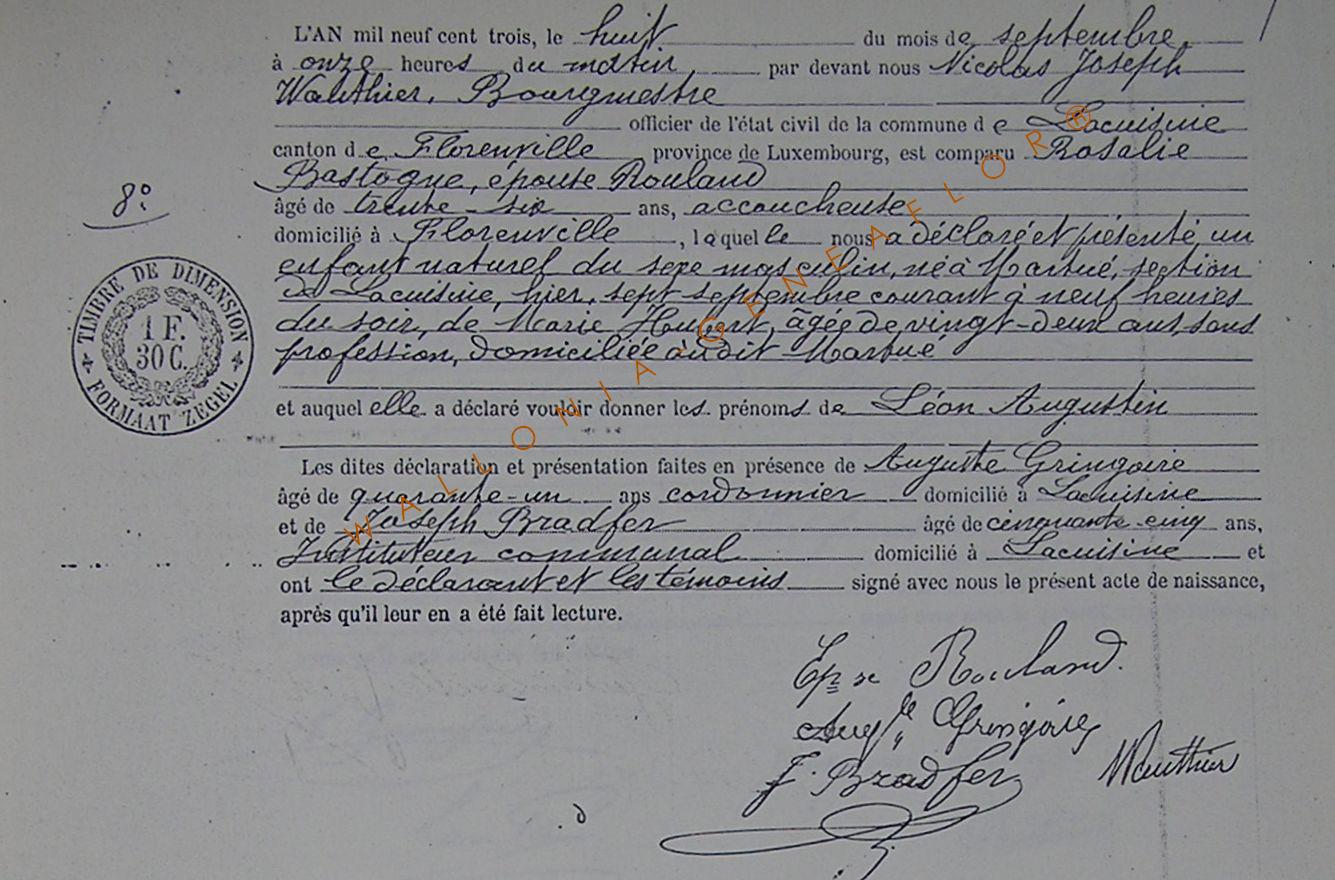 L'AN mil neuf cent trois, le huit du mois de septembre
à onze heures du matin, par devant nous Nicolas Joseph
Wauthier, Bourgmestre
officier de l'état civil de la commune de Lacuisine
canton de Florenville province de Luxembourg, est comparu Rosalie
Bastogne, épouse Rouland
8°
âgé de trente-six ans, accoucheuse
domicilié à Florenville, laquelle nous a déclaré et présenté un
enfant naturel du sexe masculin, né à Martué, section
de Lacuisine, hier, sept septembre courant à neuf heures
du soir, de Marie Hubert, âgée de vingt-deux ans, sans
profession, domiciliée audit Martué
TIMBRE DE DIMENSION
1 F.
30 C.
FORMAAT ZEGEL
et auquel elle a déclaré vouloir donner les prénoms de Léon Augustin
Les dites déclaration et présentation faites en présence de Auguste Gringoire
âgé de quarante-un ans cordonnier domicilié à Lacuisine
et de Joseph Bradfer âgé de cinquante-cinq ans,
Instituteur communal domicilié à Lacuisine et
ont le déclarant et les témoins signé avec nous le présent acte de naissance,
après qu'il leur en a été fait lecture.
Epse Rouland.
Augte Gringoire
J. Bradfer
Wauthier
WALLONIA GENEAFLOR®